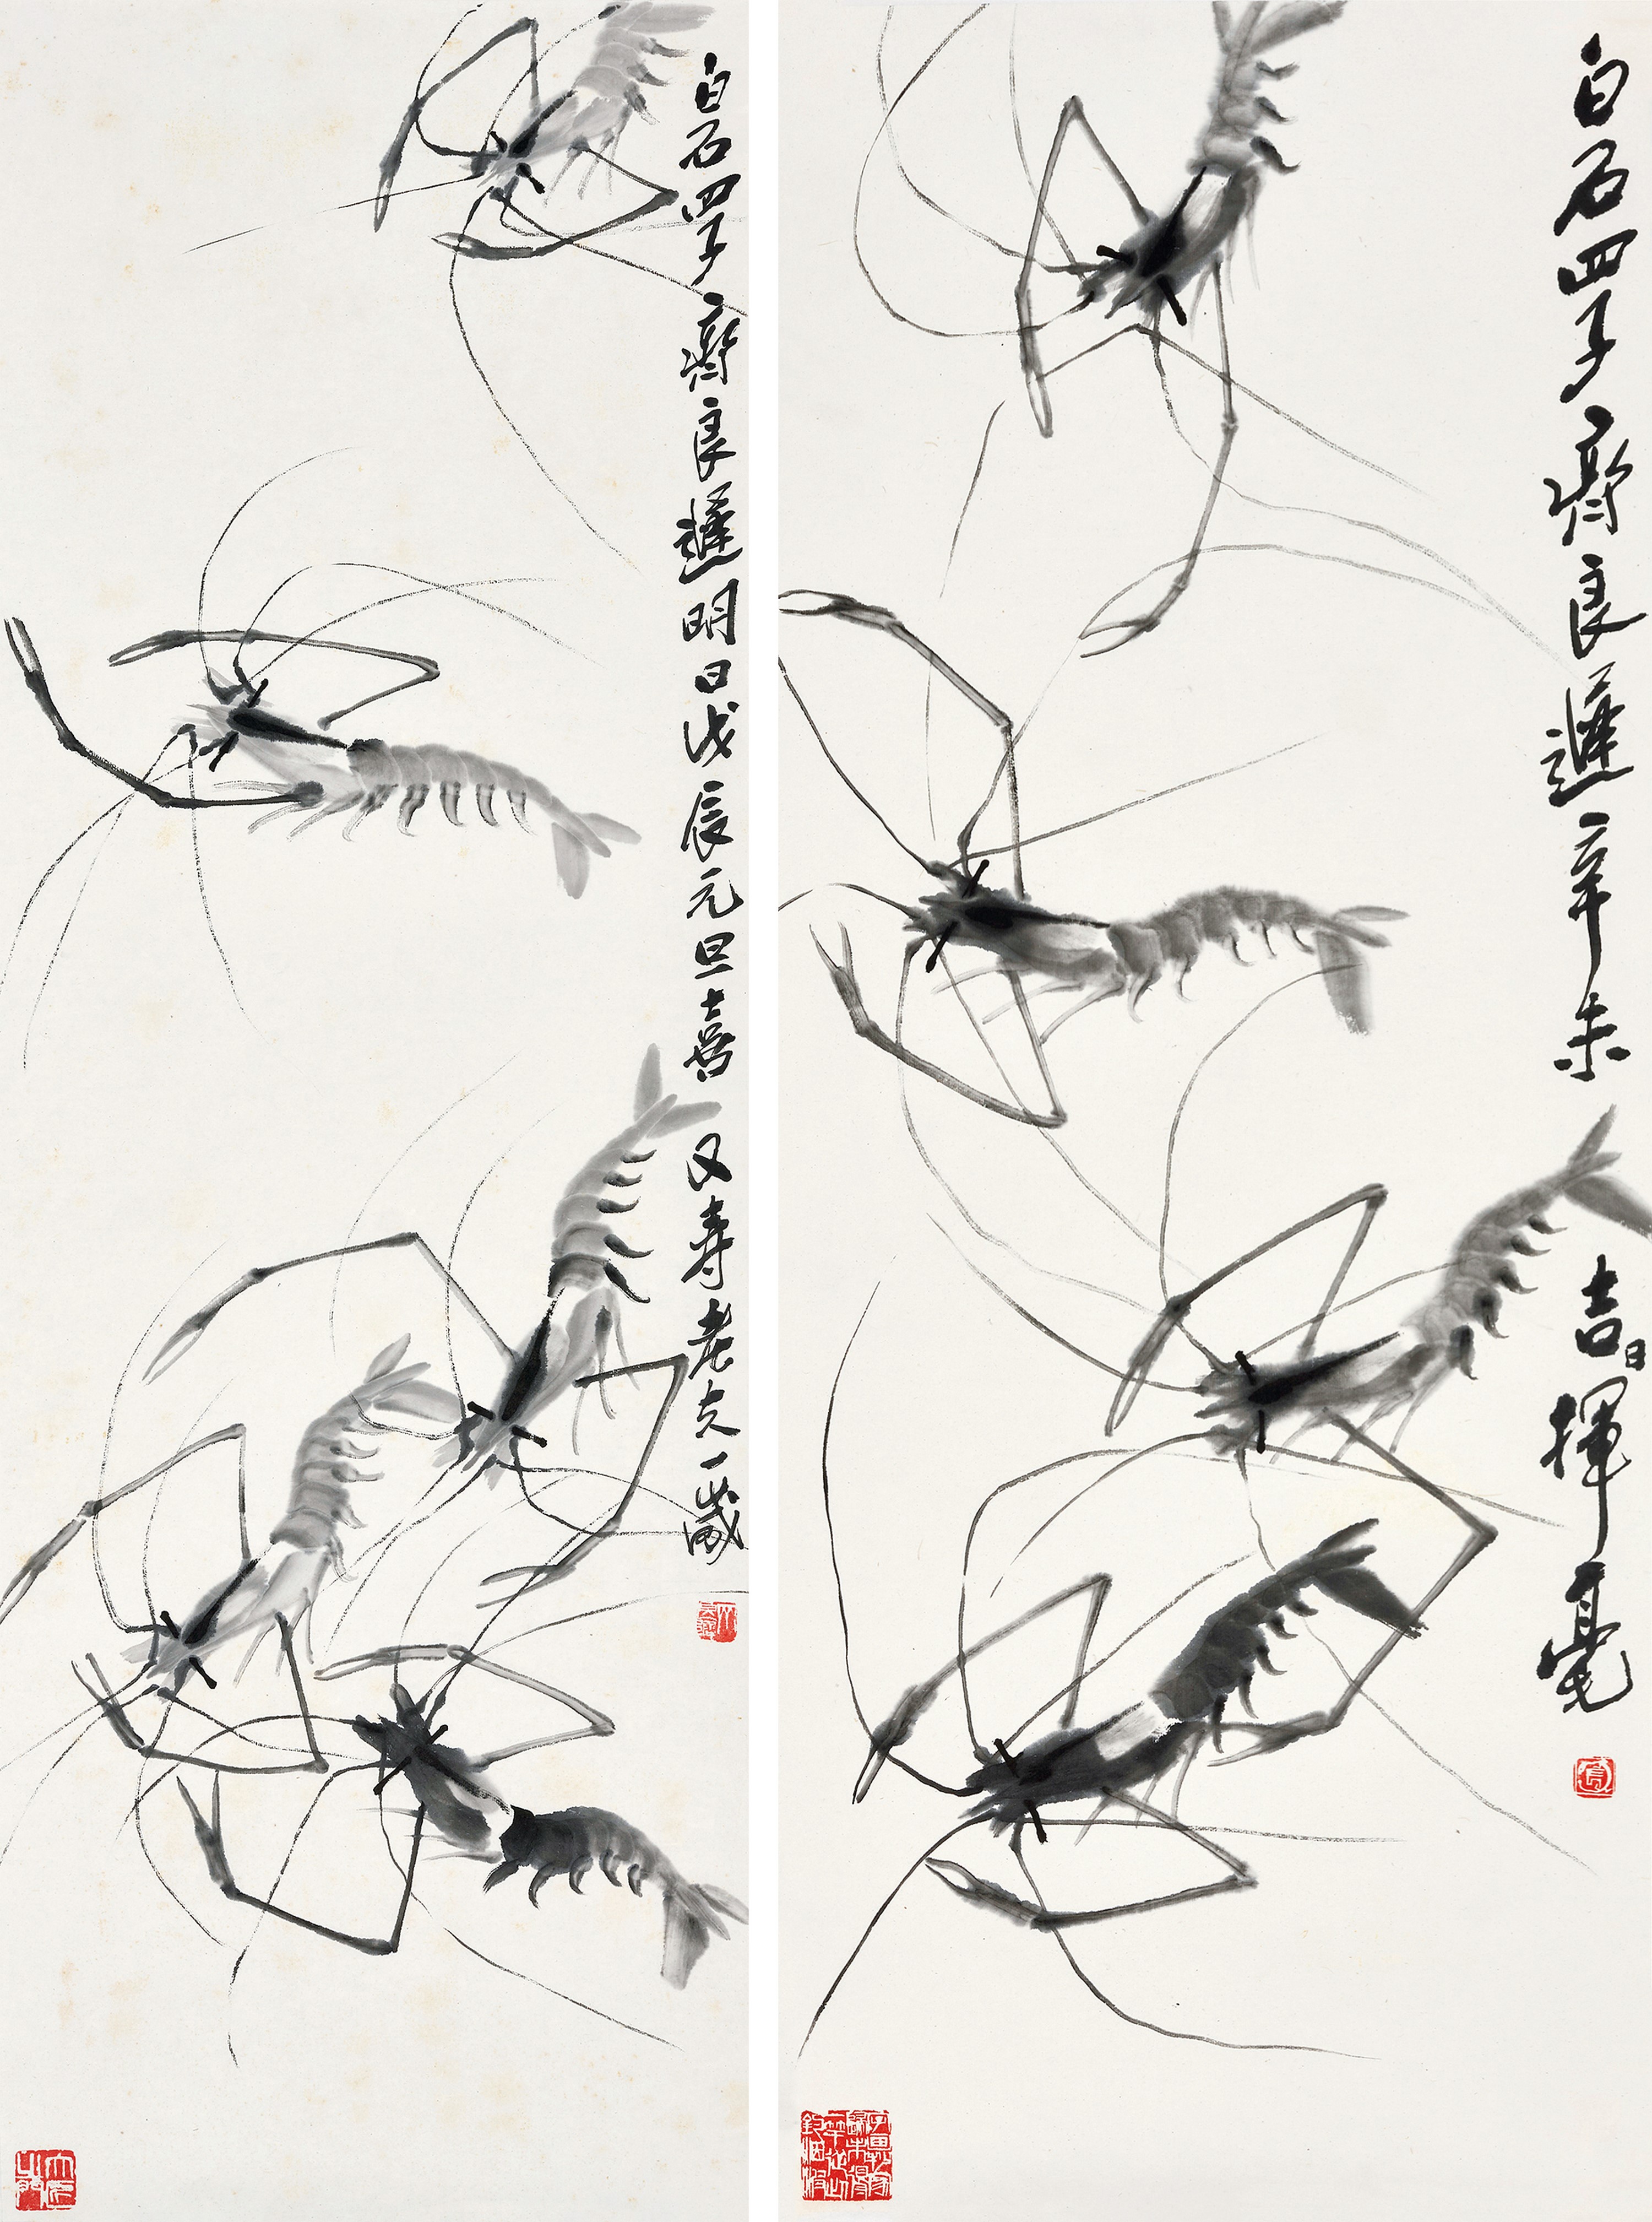 白石四子齊良遲辛未吉日揮毫
白石四子齊良遲明日戊辰元旦喜又壽老夫一歲